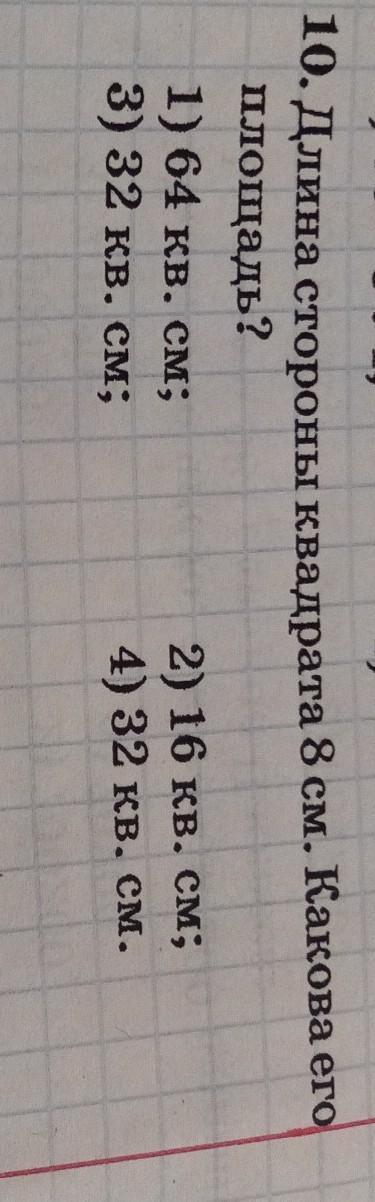 10. Длина стороны квадрата 8 см. Какова его
площадь?
1) 64 кв. см; 2) 16 кв. см;
3) 32 кв. см; 4) 32 кв. см.